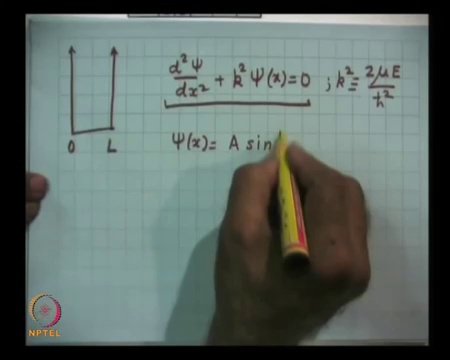 d²Ψ/dx² + k² Ψ(x) = 0 ; k² = 2μE/ħ²
O L
Ψ(x) = A sin
NPTEL